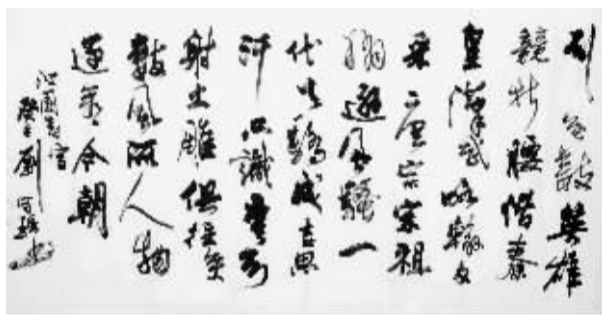 引無數英雄
競折腰惜秦
皇漢武略輸文
采唐宗宋祖
稍遜風騷一
代天驕成吉思
汗只識彎弓
射大雕俱往矣
數風流人物
還看今朝
沁園春雪
癸巳劉書